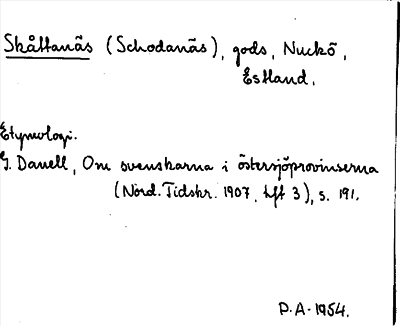 Skåltanäs (Schodanäs), gods, Nuckö,
Estland.
Etymologi.
G. Danell, Om svenskarna i östersjöprovinserna
(Nord. Tidskr. 1907, hft 3), s. 191.
P.A. 1954.